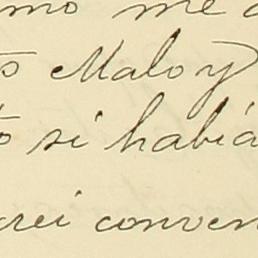 mo me
Malo y
si había
rei conven